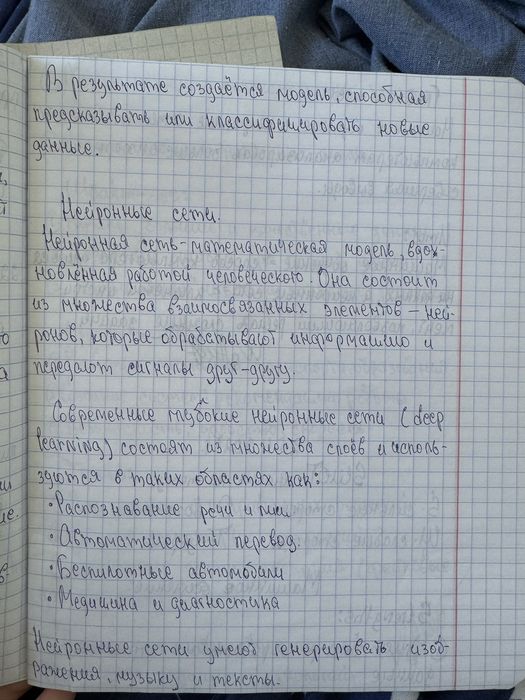 В результате создаётся модель, способная
предсказывать или классифицировать новые
данные.
Нейронные сети.
Нейронная сеть - математическая модель, вдох-
новлённая работой человеческого. Она состоит
из множества взаимосвязанных элементов – ней-
ронов, которые обрабатывают информацию и
передают сигналы друг-другу.
Современные глубокие нейронные сети (deep
learning) состоят из множества слоёв и исполь-
зуются в таких областях как:
• Распознавание речи и
• Автоматический перевод.
• Беспилотные автомобили
• Медицина и диагностика
Нейронные сети умеют генерировать изоб-
ражения, музыку и тексты.